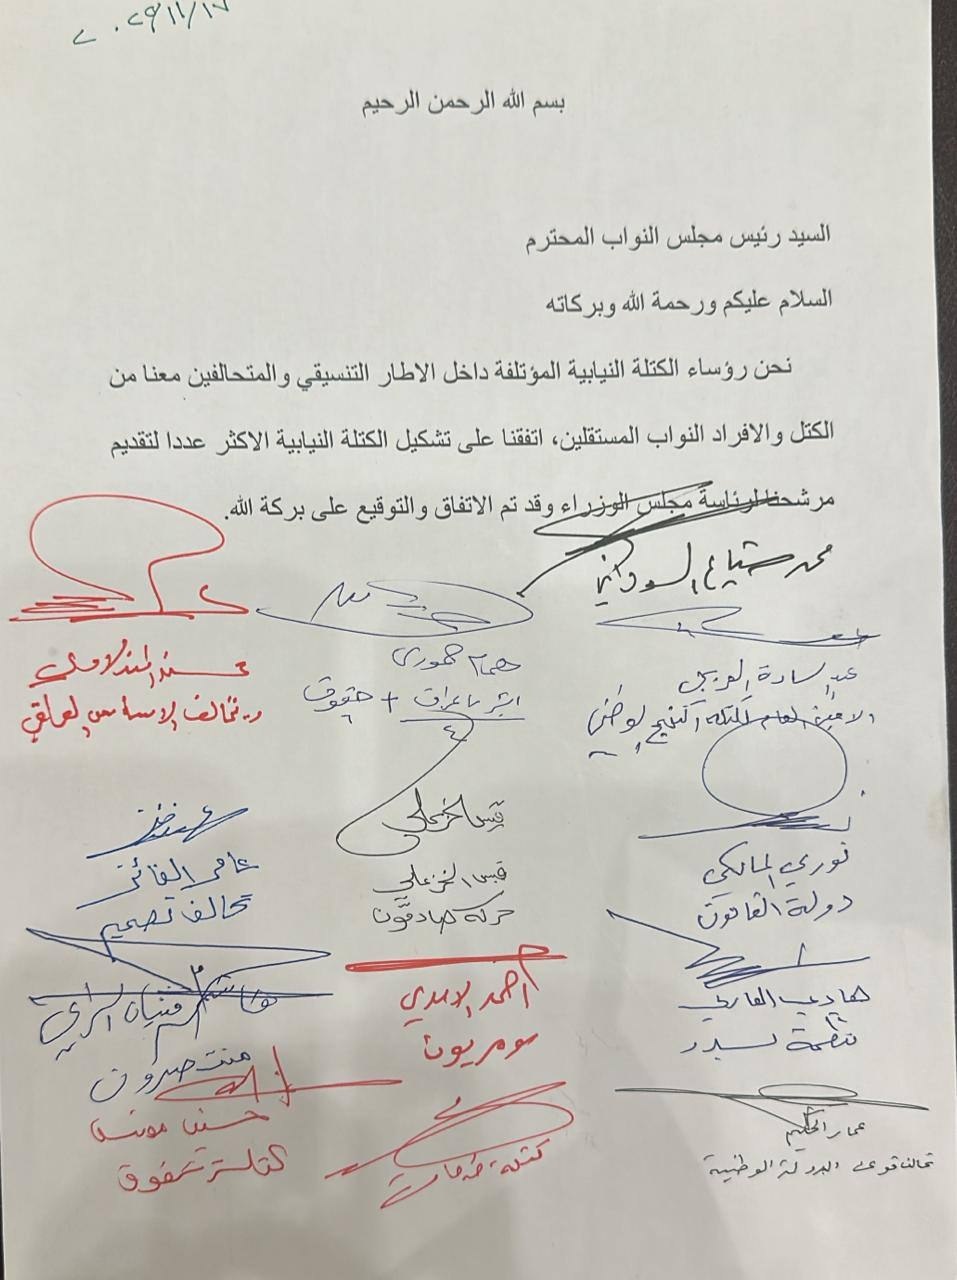 ٢٠٢٥/١١/١٧
بسم الله الرحمن الرحيم
السيد رئيس مجلس النواب المحترم
السلام عليكم ورحمة الله وبركاته
نحن رؤساء الكتلة النيابية المؤتلفة داخل الاطار التنسيقي والمتحالفين معنا من
الكتل والافراد النواب المستقلين، اتفقنا على تشكيل الكتلة النيابية الاكثر عددا لتقديم
مرشحنا لرئاسة مجلس الوزراء وقد تم الاتفاق والتوقيع على بركة الله.
محمد شياع السوداني
عبد السادة الفريجي
الامين العام للكتلة النهج الوطني
همام حمودي
ابشر يا عراق + حقوق
محسن المندلاوي
تحالف الاساس العراقي
نوري المالكي
دولة القانون
قيس الخزعلي
قيس الخزعلي
حركة صادقون
عامر الفائز
تحالف تصميم
هادي العامري
منظمة بدر
احمد الاسدي
سومريون
شبل
منتصرون
عمار الحكيم
تحالف قوى الدولة الوطنية
كتلة خدمات
حسين مونس
كتلة حقوق